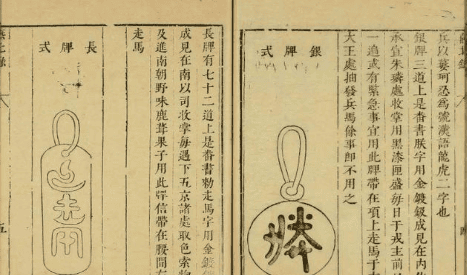 兵以葼珂忍爲號漢語龍虎二字也
銀牌三道上是番書朕字用金鍍鈒成見在內
承宣朱璘處收掌用黑漆匣盛每日于戎主前
一遍或有緊急事宜用此牌帶在項上走馬于
大王處抽發兵馬餘事即不用之
銀牌式
長牌有七十二道上是番書勑走馬字用金鍍
成見在南以司收掌每遇下五京諸處取色索物
及進南朝野味鹿茸果子用此牌信帶在腰間左
走馬
長牌式
五